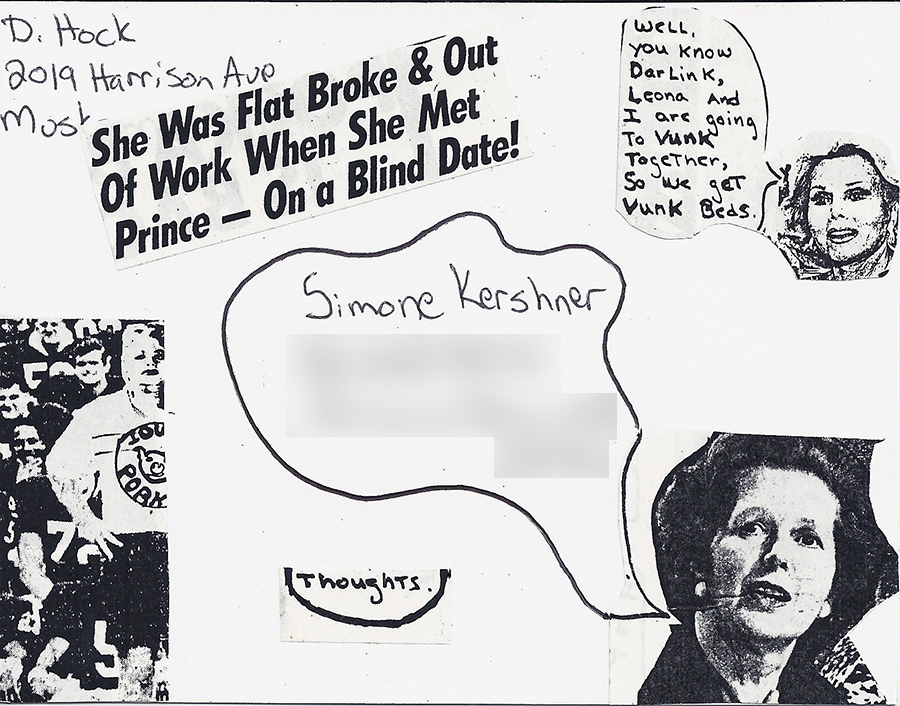 D. Hock
2019 Harrison Ave
She Was Flat Broke & Out
Of Work When She Met
Prince — On a Blind Date!
Well,
you know
DarLink,
Leona And
I are going
To Vunk
Together,
So we geT
Vunk Beds.
Simone Kershner
IOU
PORK
Thoughts.